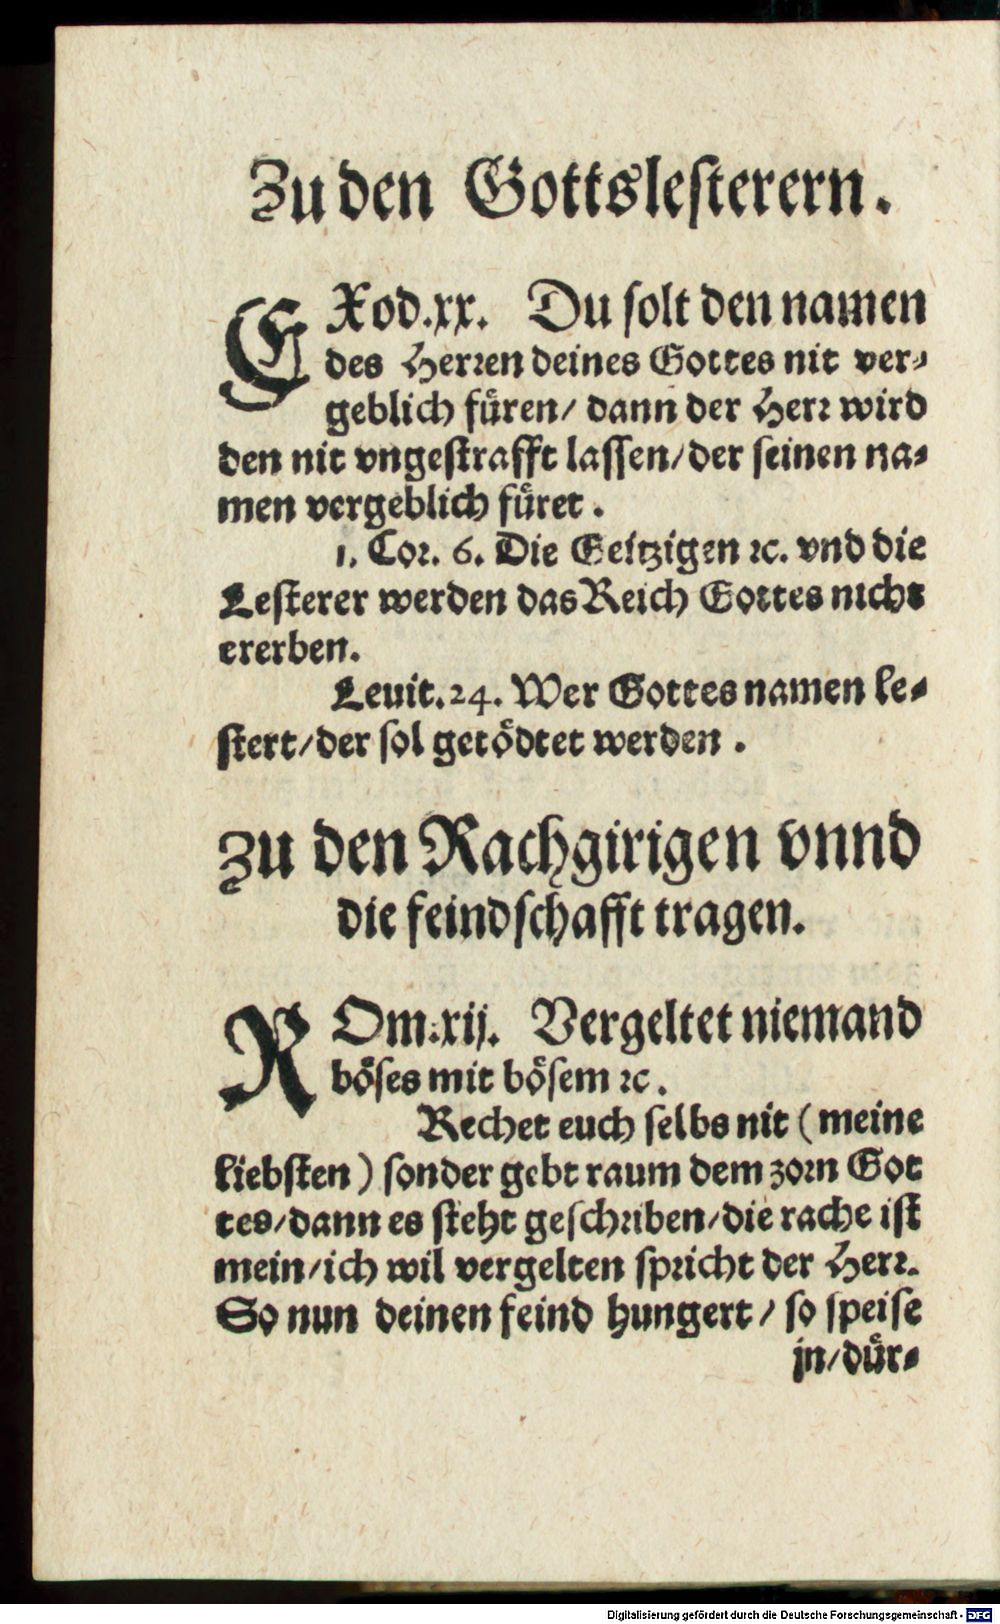 Zu den Gottslesterern.
EXod.xx. Du solt den namen
des Herren deines Gottes nit ver⸗
geblich fuͤren/ dann der Herr wird
den nit vngestrafft lassen/ der seinen na⸗
men vergeblich fuͤret.
1. Cor. 6. Die Geitzigen ꝛc. vnd die
Lesterer werden das Reich Gottes nicht
ererben.
Leuit. 24. Wer Gottes namen le⸗
stert/ der sol getoͤdtet werden.
Zu den Rachgirigen vnnd
die feindschafft tragen.
ROm.xij. Vergeltet niemand
boͤses mit boͤsem ꝛc.
Rechet euch selbs nit (meine
liebsten) sonder gebt raum dem zorn Got
tes/ dann es steht geschriben/ die rache ist
mein/ ich wil vergelten spricht der Herr.
So nun deinen feind hungert/ so speise
jn/ duͤr⸗
Digitalisierung gefördert durch die Deutsche Forschungsgemeinschaft - DFG